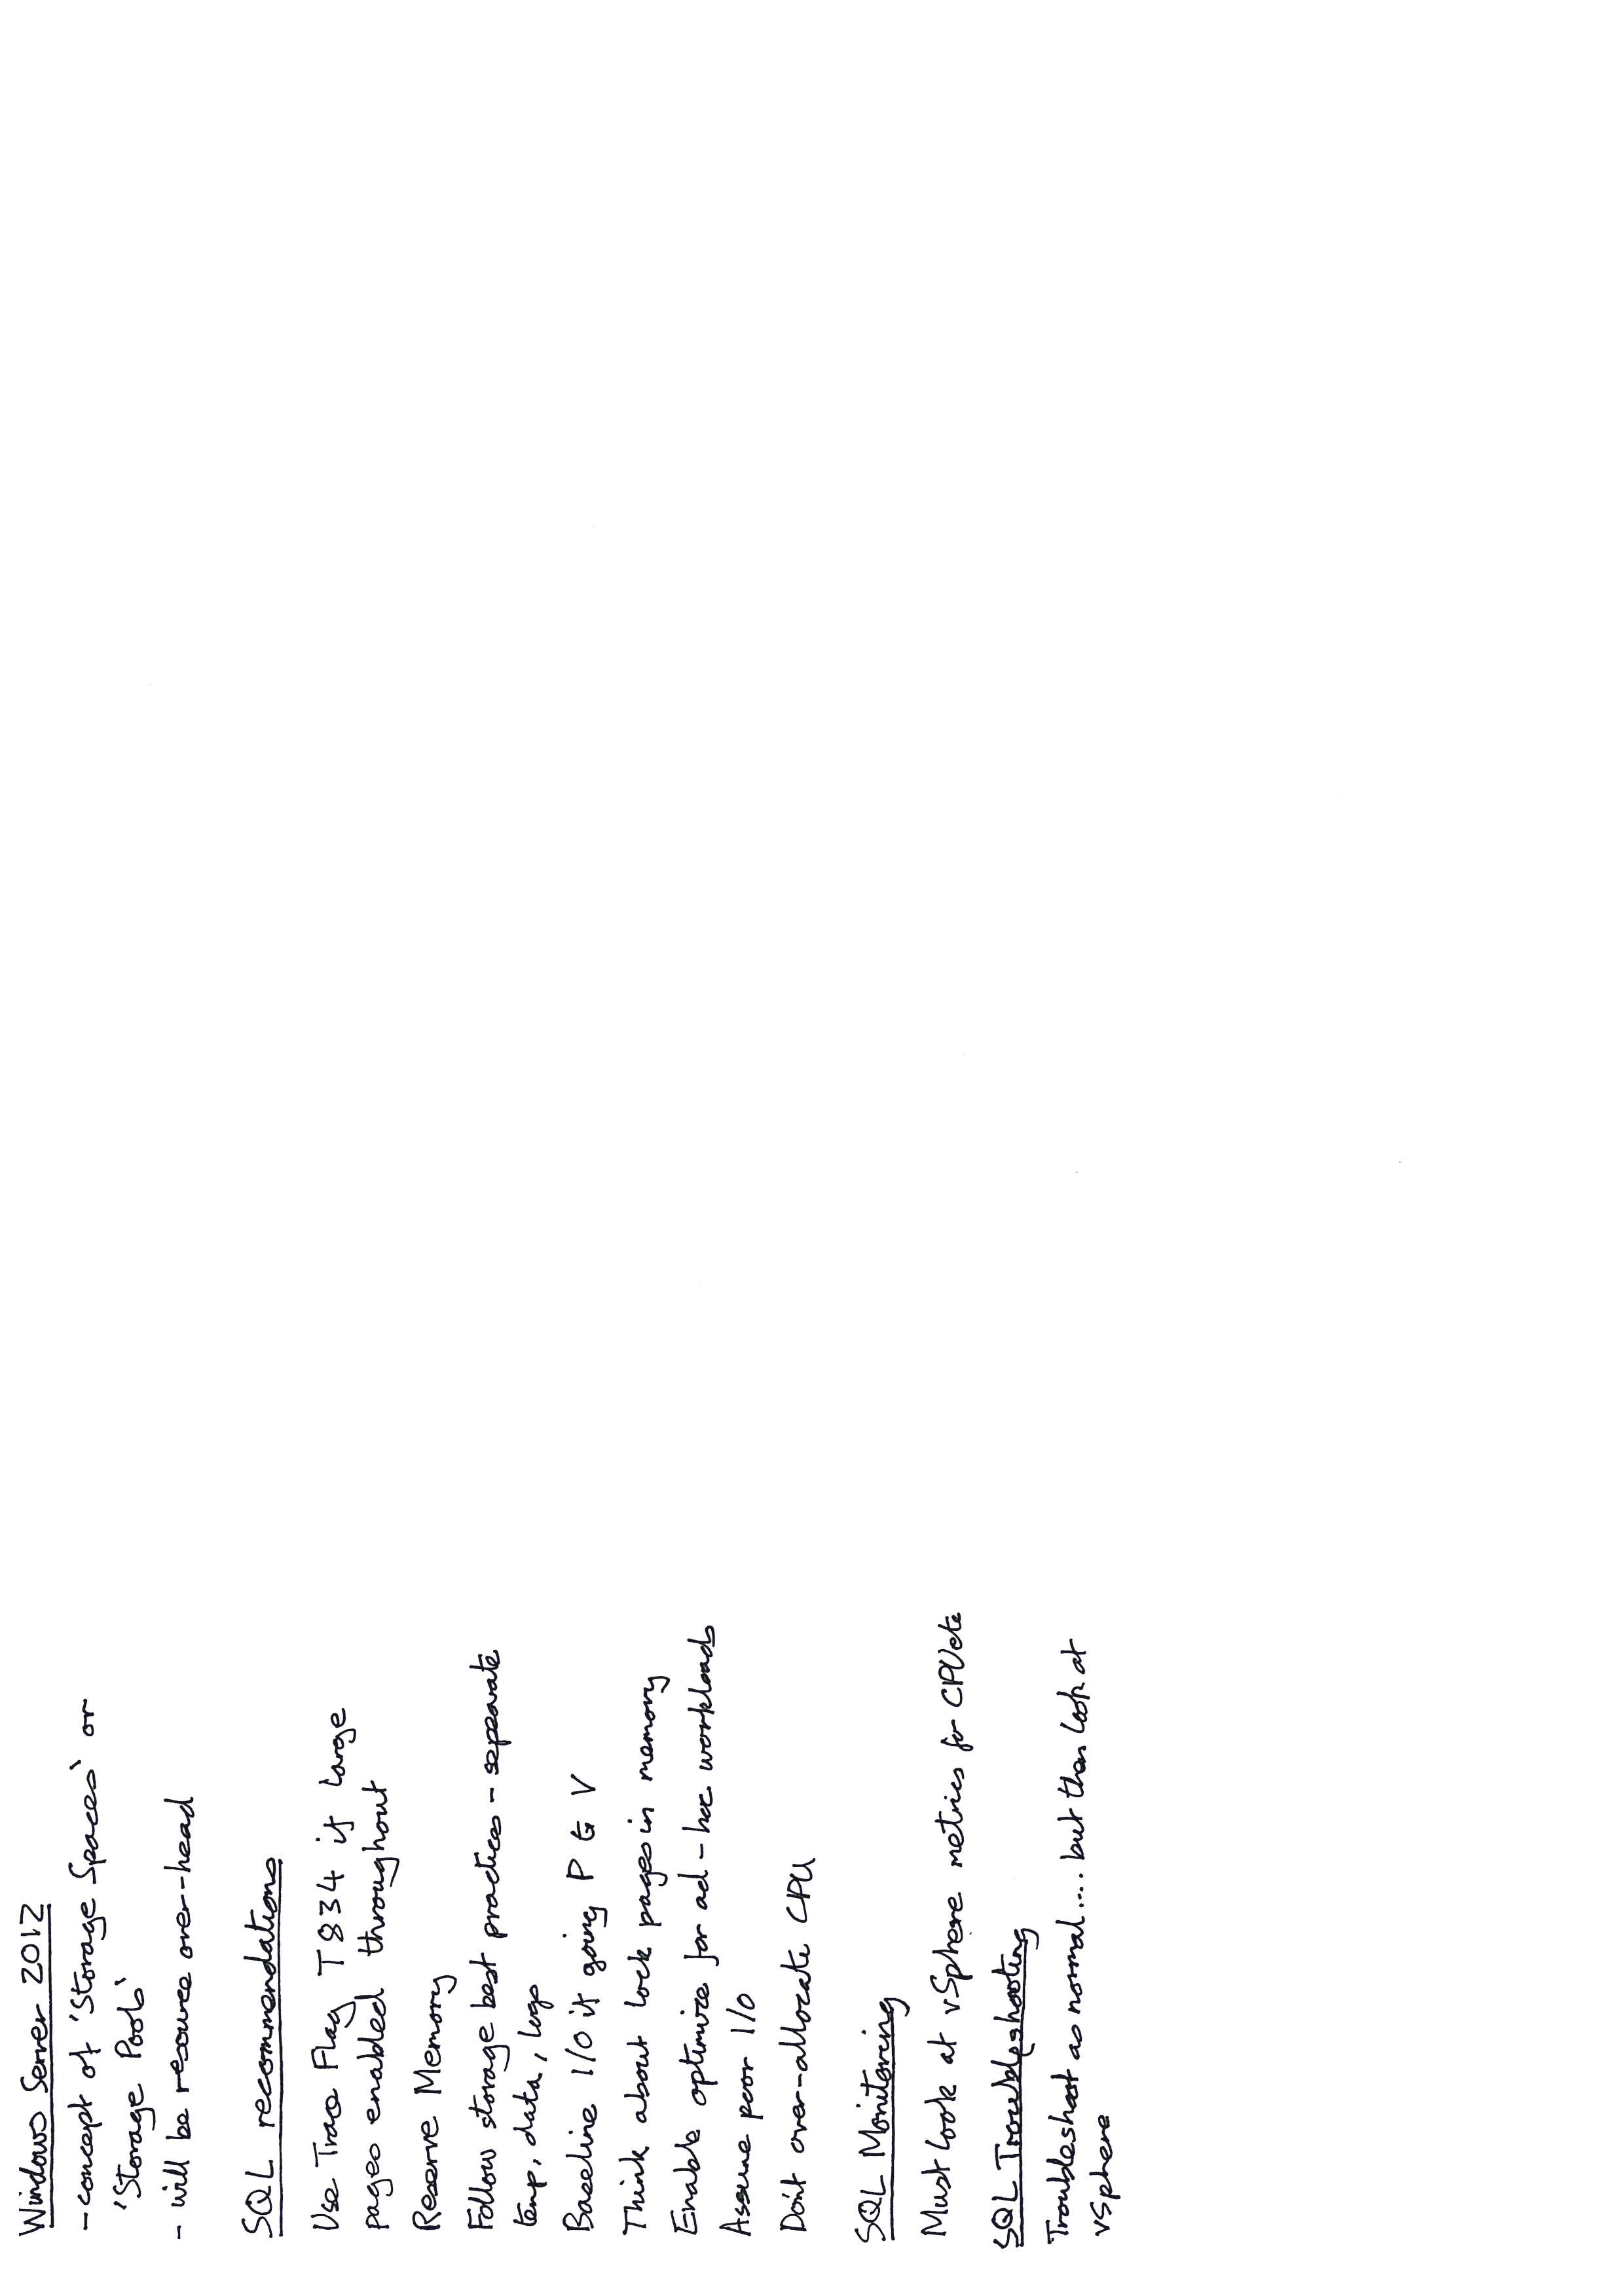 Windows Server 2012
- concept of 'Storage Spaces' or
'Storage Pools'
- will be resource over-head
SQL recommendations
Use Trace Flag T834 if large
pages enabled throughout
Reserve Memory
Follow storage best practices - separate
temp, data, logs
Baseline I/O if going P to V
Think about lock pages in memory
Enable optimize for ad-hoc workloads
Assume poor I/O
Don't over-allocate CPU
SQL Monitoring
Must look at vSphere metrics for CPU etc
SQL Troubleshooting
Troubleshoot as normal.... but then look at
vSphere